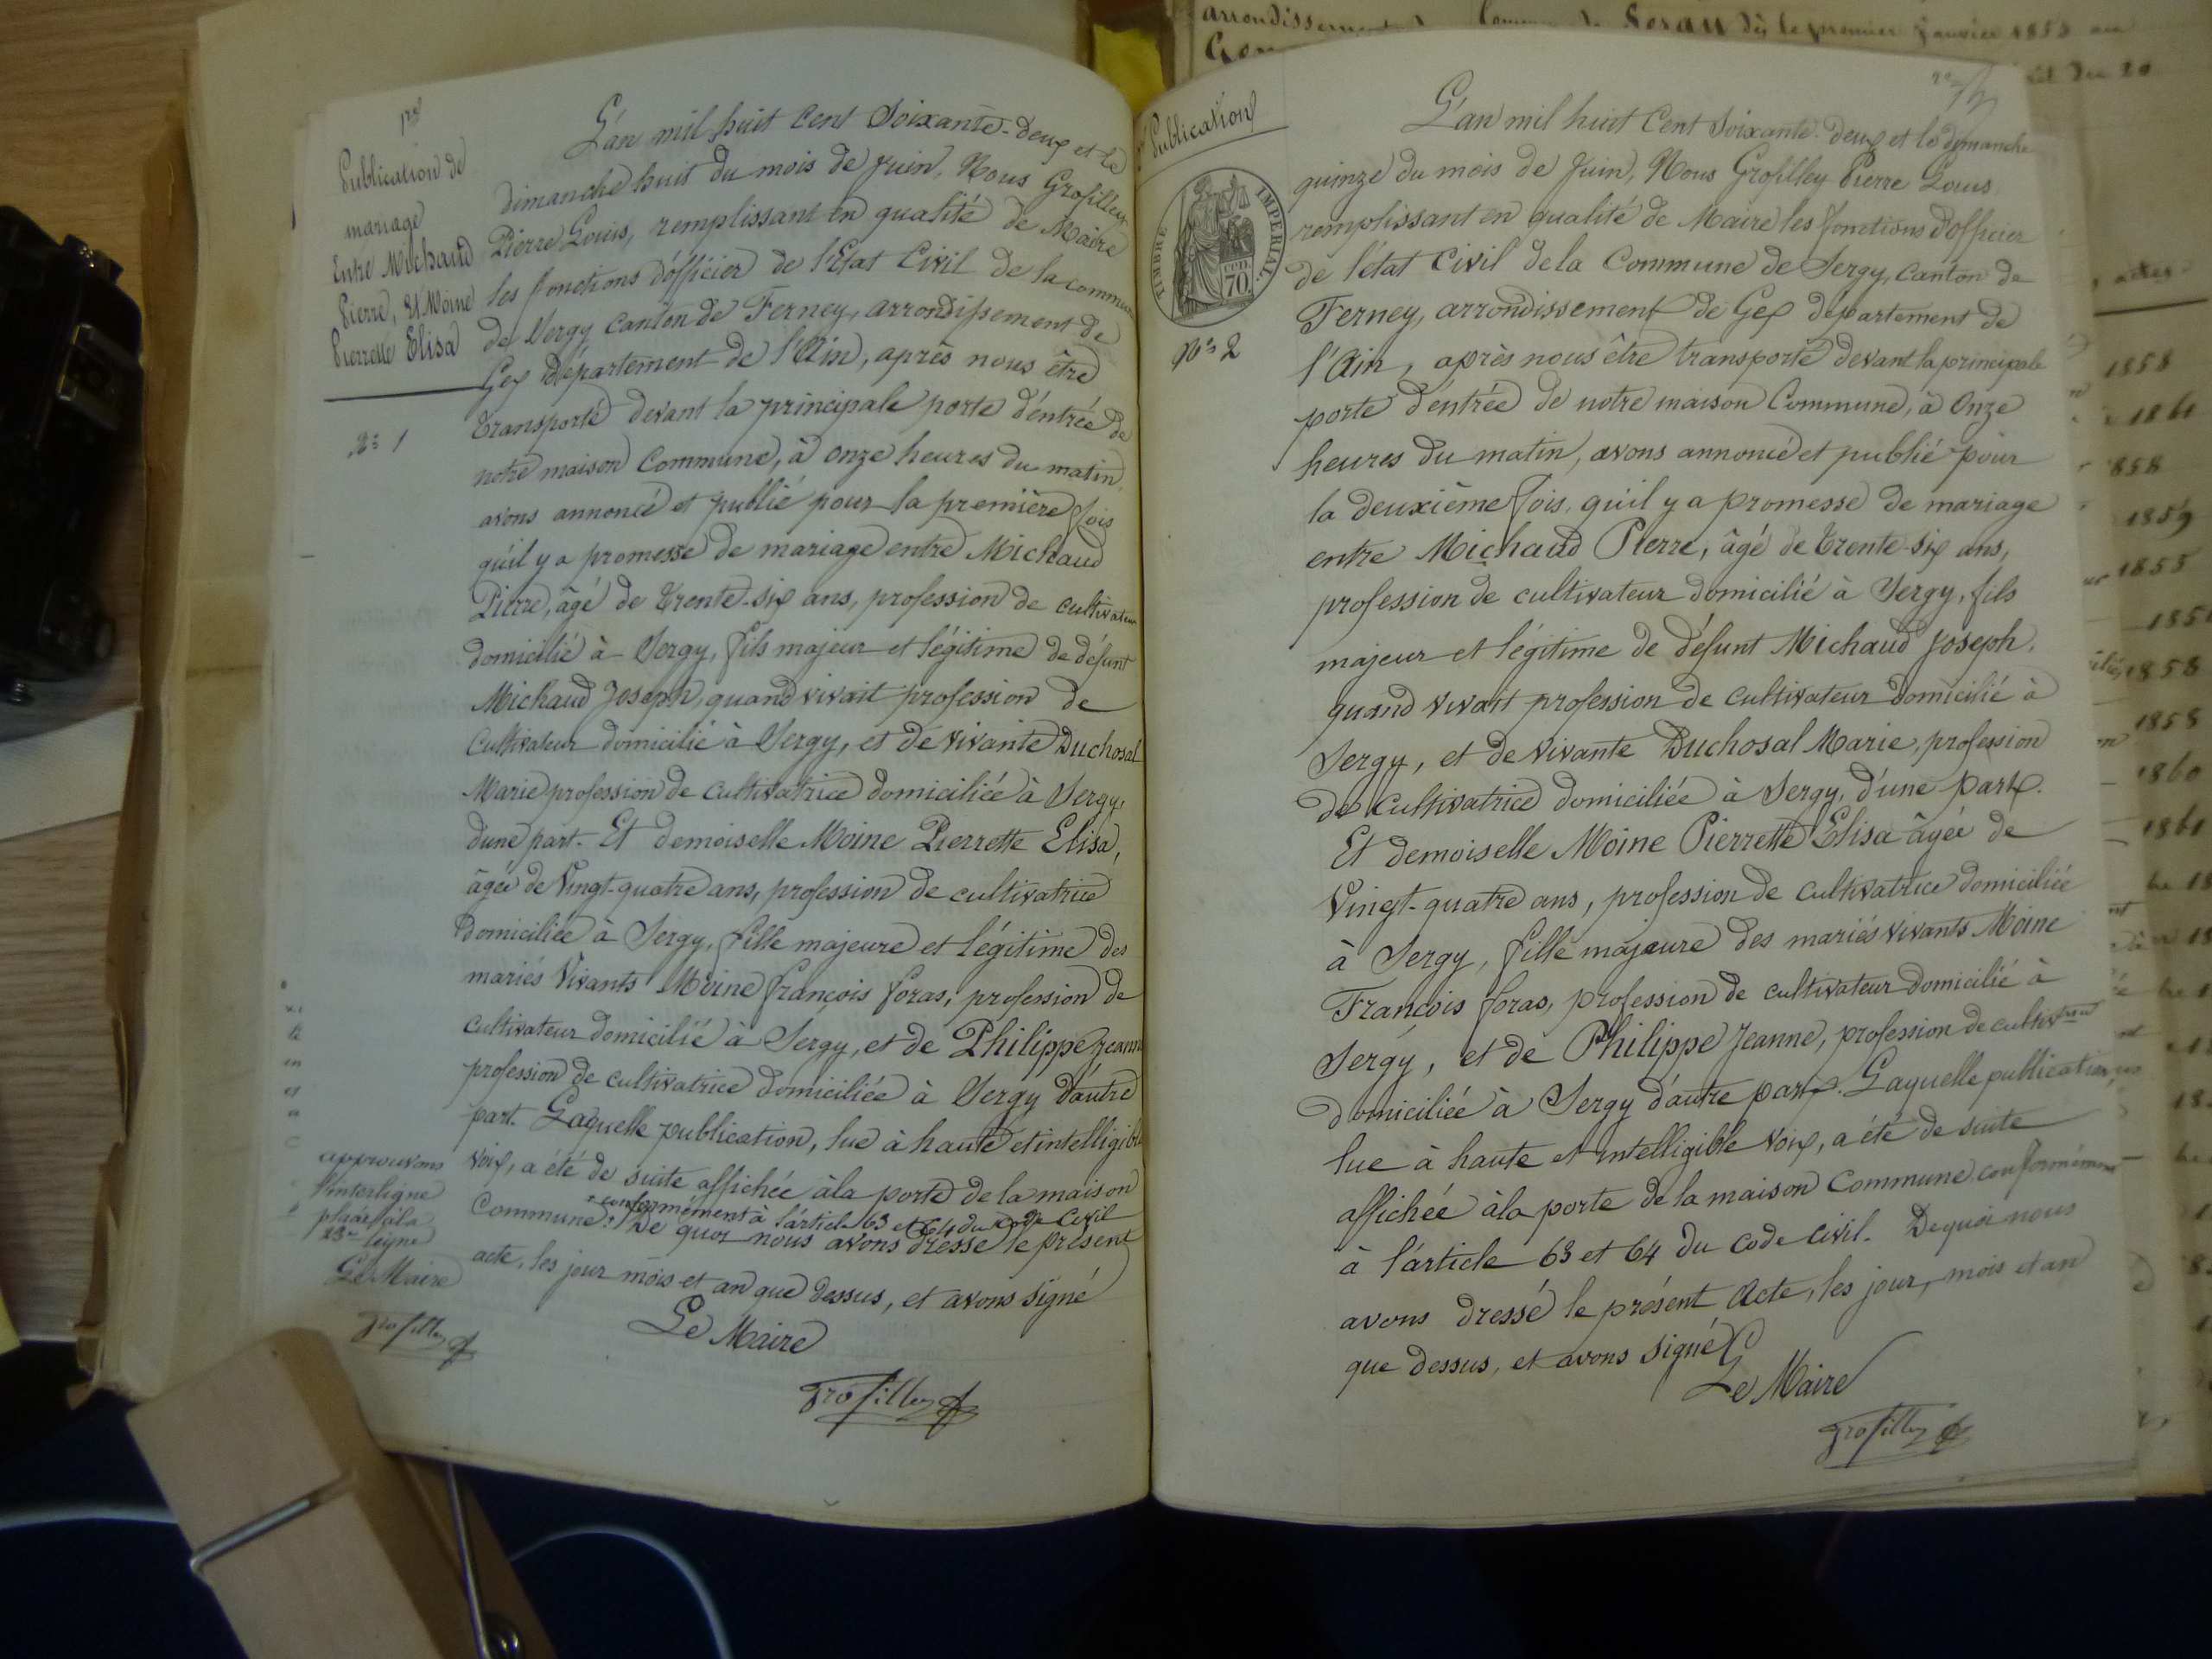 1re
Publication de
mariage
Entre Michaud
Pierre, & Moine
Pierrette Elisa
L'an mil huit Cent Soixante-deux et le
dimanche huit du mois de Juin, Nous Grosfilley
Pierre Louis, remplissant en qualité de Maire
les fonctions d'officier de l'Etat Civil de la commune
de Sergy canton de Ferney, arrondissement de
Gex département de l'Ain, après nous être
transporté devant la principale porte d'entrée de
Nos 1
notre maison Commune, à onze heures du matin,
avons annoncé et publié pour la première fois
qu'il y a promesse de mariage entre Michaud
Pierre, âgé de trente-six ans, profession de cultivateur
domicilié à Sergy, fils majeur et légitime de défunt
Michaud Joseph, quand vivait profession de
Cultivateur domicilié à Sergy, et de vivante Duchosal
Marie profession de cultivatrice domiciliée à Sergy,
d'une part. Et demoiselle Moine Pierrette Elisa,
âgée de Vingt-quatre ans, profession de cultivatrice
domiciliée à Sergy, fille majeure et légitime des
mariés Vivants Moine françois foras, profession de
cultivateur domicilié à Sergy, et de Philippe Jeanne
profession de cultivatrice domiciliée à Sergy d'autre
part. Laquelle publication, lue à haute et intelligible
voix, a été de suite affichée à la porte de la maison
Commune. * conformément à l'article 63 et 64 du code Civil
De quoi nous avons dressé le présent
acte, les jour mois et an que dessus, et avons signé
Le Maire
Grosfilley
approuvons
l'interligne
placé à la
23me ligne
Le Maire
Grosfilley
2e
Publication
TIMBRE IMPERIAL
CEN.
70.
Nos 2
L'an mil huit Cent Soixante-deux et le dimanche
quinze du mois de Juin, Nous Grosfilley Pierre Louis,
remplissant en qualité de Maire les fonctions d'officier
de l'état Civil de la Commune de Sergy, Canton de
Ferney, arrondissement de Gex département de
l'Ain, après nous être transporté devant la principale
porte d'entrée de notre maison Commune, à Onze
heures du matin, avons annoncé et publié pour
la deuxième fois, qu'il y a promesse de mariage
entre Michaud Pierre, âgé de trente-six ans,
profession de cultivateur domicilié à Sergy, fils
majeur et légitime de défunt Michaud Joseph,
quand vivait profession de cultivateur domicilié à
Sergy, et de vivante Duchosal Marie, profession
de cultivatrice domiciliée à Sergy, d'une part.
Et demoiselle Moine Pierrette Elisa âgée de
Vingt-quatre ans, profession de cultivatrice domiciliée
à Sergy, fille majeure des mariés vivants Moine
François foras, profession de cultivateur domicilié à
Sergy, et de Philippe Jeanne, profession de cultivatrice
domiciliée à Sergy d'autre part. Laquelle publication,
lue à haute et intelligible voix, a été de suite
affichée à la porte de la maison Commune conformément
à l'article 63 et 64 du code civil. De quoi nous
avons dressé le présent Acte, les jour, mois et an
que dessus, et avons signé
Le Maire
Grosfilley
arrondissement
dès le premier Janvier 1853 au
du 20
actes
1858
1861
1858
1859
1855
1858
1858
1860
1861